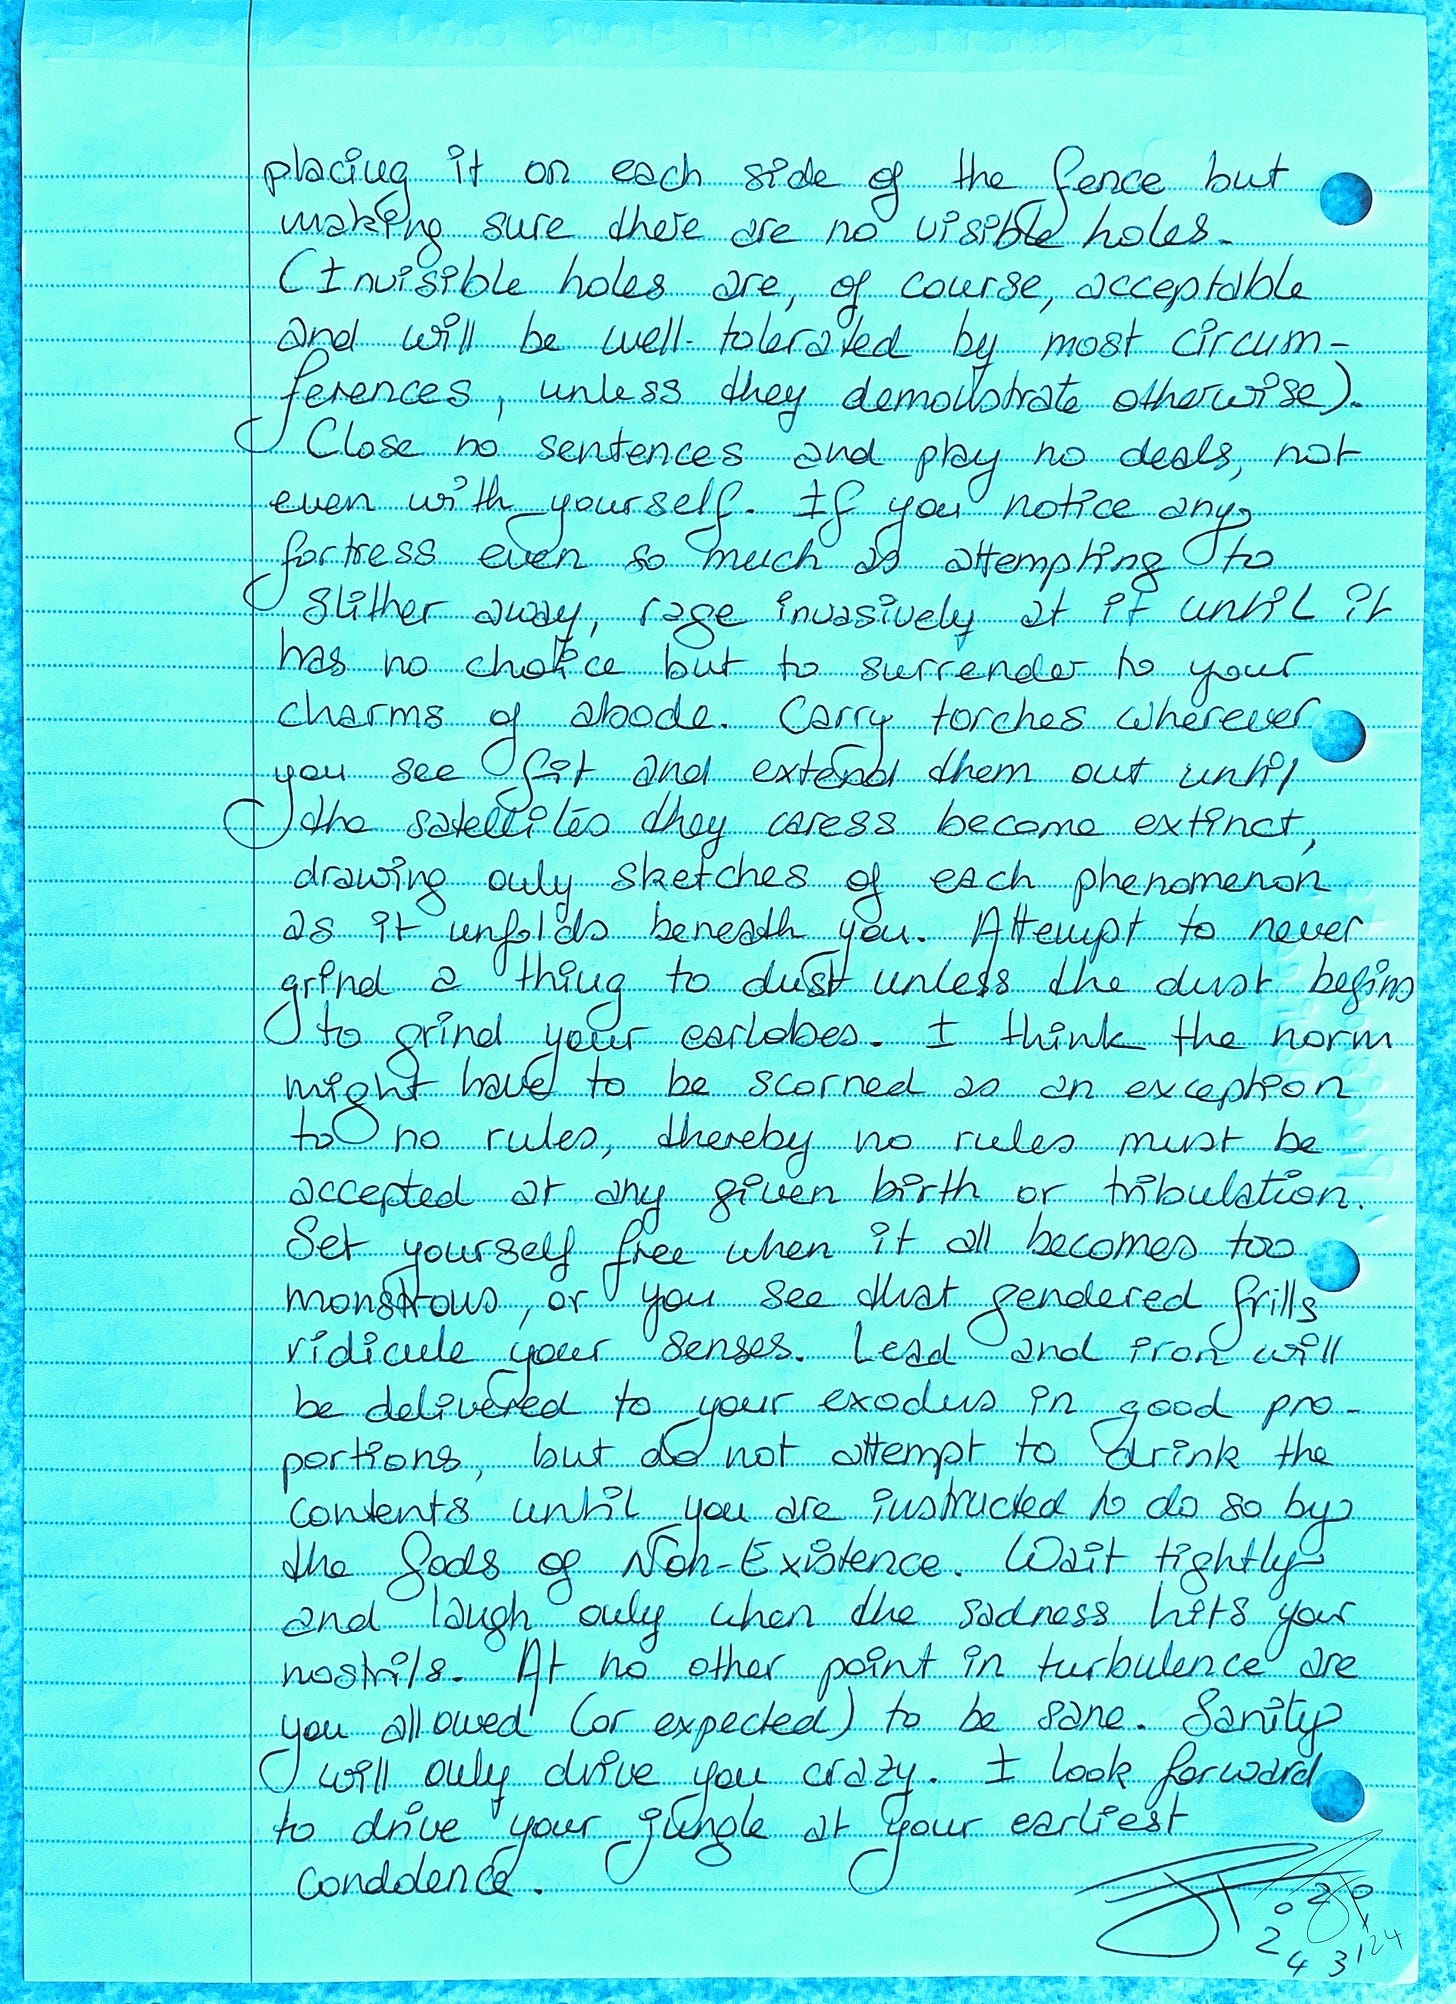 placing it on each side of the fence but
making sure there are no visible holes.
(Invisible holes are, of course, acceptable
and will be well-tolerated by most circum-
ferences, unless they demonstrate otherwise).
Close no sentences and play no deals, not
even with yourself. If you notice any
fortress even so much as attempting to
slither away, rage invasively at it until it
has no choice but to surrender to your
charms of abode. Carry torches wherever
you see fit and extend them out until
the satellites they caress become extinct,
drawing only sketches of each phenomenon
as it unfolds beneath you. Attempt to never
grind a thing to dust unless the dust begins
to grind your earlobes. I think the norm
might have to be scorned as an exception
to no rules, thereby no rules must be
accepted at any given birth or tribulation.
Set yourself free when it all becomes too
monstrous, or you see that gendered frills
ridicule your senses. Lead and iron will
be delivered to your exodus in good pro-
portions, but do not attempt to drink the
contents until you are instructed to do so by
the Gods of Non-Existence. Wait tightly
and laugh only when the sadness hits your
nostrils. At no other point in turbulence are
you allowed (or expected) to be sane. Sanity
will only drive you crazy. I look forward
to drive your jungle at your earliest
condolence.